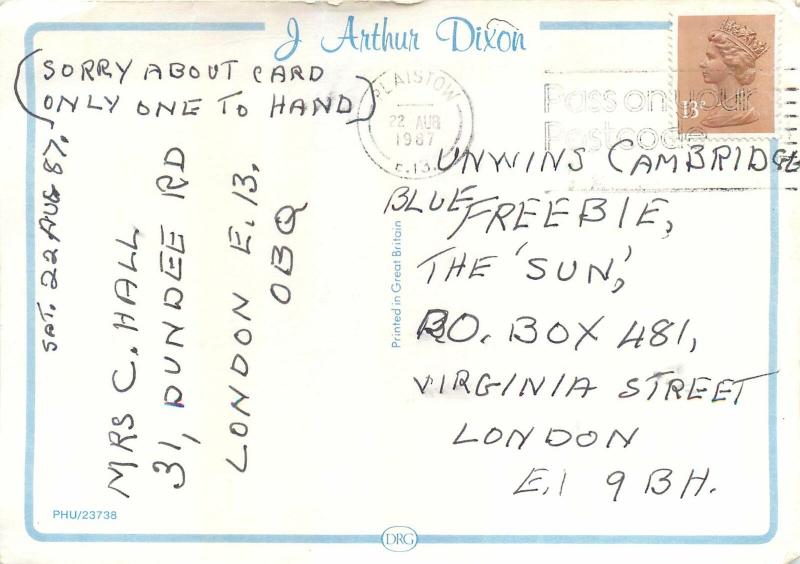 J Arthur Dixon
(SORRY ABOUT CARD
ONLY ONE TO HAND)
SAT. 22 AUG 87.
MRS C. HALL
31, DUNDEE RD
LONDON E.13.
OBQ
PLAISTOW
22 AUG
1987
E.13.
Pass on your
Postcode
13P
UNWINS CAMBRIDGE
BLUE FREEBIE,
THE 'SUN',
P.O. BOX 481,
VIRGINIA STREET
LONDON
E.1 9BH.
Printed in Great Britain
PHU/23738
DRG